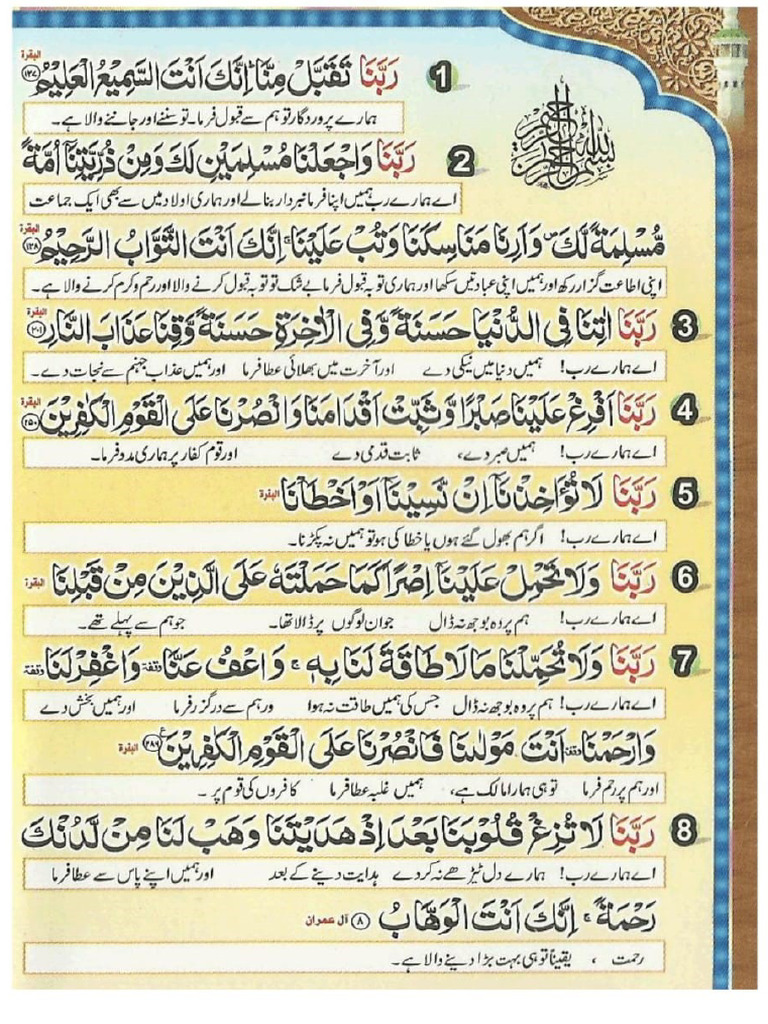 بسم الله الرحمن الرحيم
1 رَبَّنَا تَقَبَّلْ مِنَّا ؕ اِنَّكَ اَنْتَ السَّمِيْعُ الْعَلِيْمُ ﴿۱۲۷﴾ البقرة
ہمارے پروردگار تو ہم سے قبول فرما۔ تو سننے اور جاننے والا ہے۔
2 رَبَّنَا وَاجْعَلْنَا مُسْلِمَيْنِ لَكَ وَمِنْ ذُرِّيَّتِنَاۤ اُمَّةً
اے ہمارے رب ہمیں اپنا فرمانبردار بنا لے اور ہماری اولاد میں سے بھی ایک جماعت
مُّسْلِمَةً لَّكَ ۪ وَاَرِنَا مَنَاسِكَنَا وَتُبْ عَلَيْنَا ۚ اِنَّكَ اَنْتَ التَّوَّابُ الرَّحِيْمُ ﴿۱۲۸﴾ البقرة
اپنی اطاعت گزار رکھ اور ہمیں اپنی عبادتیں سکھا اور ہماری توبہ قبول فرما بے شک تو توبہ قبول کرنے والا اور رحم و کرم کرنے والا ہے۔
3 رَبَّنَاۤ اٰتِنَا فِى الدُّنْيَا حَسَنَةً وَّفِى الْاٰخِرَةِ حَسَنَةً وَّقِنَا عَذَابَ النَّارِ ﴿۲۰۱﴾ البقرة
اے ہمارے رب! ہمیں دنیا میں نیکی دے اور آخرت میں بھلائی عطا فرما اور ہمیں عذاب جہنم سے نجات دے۔
4 رَبَّنَاۤ اَفْرِغْ عَلَيْنَا صَبْرًا وَّثَبِّتْ اَقْدَامَنَا وَانْصُرْنَا عَلَى الْقَوْمِ الْكٰفِرِيْنَ ﴿۲۵۰﴾ البقرة
اے ہمارے رب! ہمیں صبر دے، ثابت قدمی دے اور قوم کفار پر ہماری مدد فرما۔
5 رَبَّنَا لَا تُؤَاخِذْنَاۤ اِنْ نَّسِيْنَاۤ اَوْ اَخْطَاْنَا البقرة
اے ہمارے رب! اگر ہم بھول گئے ہوں یا خطا کی ہو تو ہمیں نہ پکڑنا۔
6 رَبَّنَا وَلَا تَحْمِلْ عَلَيْنَاۤ اِصْرًا كَمَا حَمَلْتَهٗ عَلَى الَّذِيْنَ مِنْ قَبْلِنَا البقرة
اے ہمارے رب! ہم پر وہ بوجھ نہ ڈال جو ان لوگوں پر ڈالا تھا۔ جو ہم سے پہلے تھے۔
7 رَبَّنَا وَلَا تُحَمِّلْنَا مَا لَا طَاقَةَ لَنَا بِهٖ ۚ وَاعْفُ عَنَّا وقفة وَاغْفِرْ لَنَا وقفة
اے ہمارے رب! ہم پر وہ بوجھ نہ ڈال جس کی ہمیں طاقت نہ ہو اور ہم سے درگزر فرما اور ہمیں بخش دے
وَارْحَمْنَا وقفة اَنْتَ مَوْلٰىنَا فَانْصُرْنَا عَلَى الْقَوْمِ الْكٰفِرِيْنَ ﴿۲۸۶﴾ البقرة
اور ہم پر رحم فرما تو ہی ہمارا مالک ہے، ہمیں غلبہ عطا فرما کافروں کی قوم پر۔
8 رَبَّنَا لَا تُزِغْ قُلُوْبَنَا بَعْدَ اِذْ هَدَيْتَنَا وَهَبْ لَنَا مِنْ لَّدُنْكَ
اے ہمارے رب! ہمارے دل ٹیڑھے نہ کر دے ہدایت دینے کے بعد اور ہمیں اپنے پاس سے عطا فرما
رَحْمَةً ۚ اِنَّكَ اَنْتَ الْوَهَّابُ ﴿۸﴾ آل عمران
رحمت ، یقیناً تو ہی بہت بڑا دینے والا ہے۔